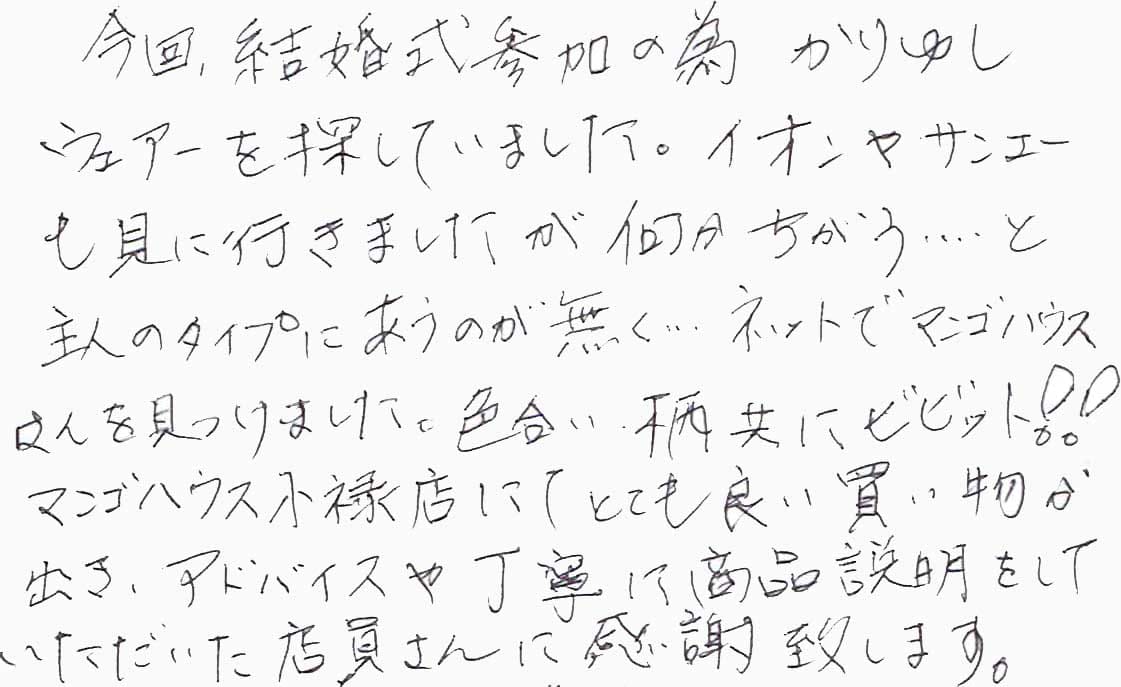 今回、結婚式参加の為 かりゆし
ウェアーを探していました。イオンやサンエー
も見に行きましたが何かちがう‥‥と
主人のタイプにあうのが無く… ネットでマンゴハウス
さんを見つけました。色合い、柄共にビビット!!
マンゴハウス小禄店にてとても良い買い物が
出き、アドバイスや丁寧に商品説明をして
いただいた店員さんに感謝致します。